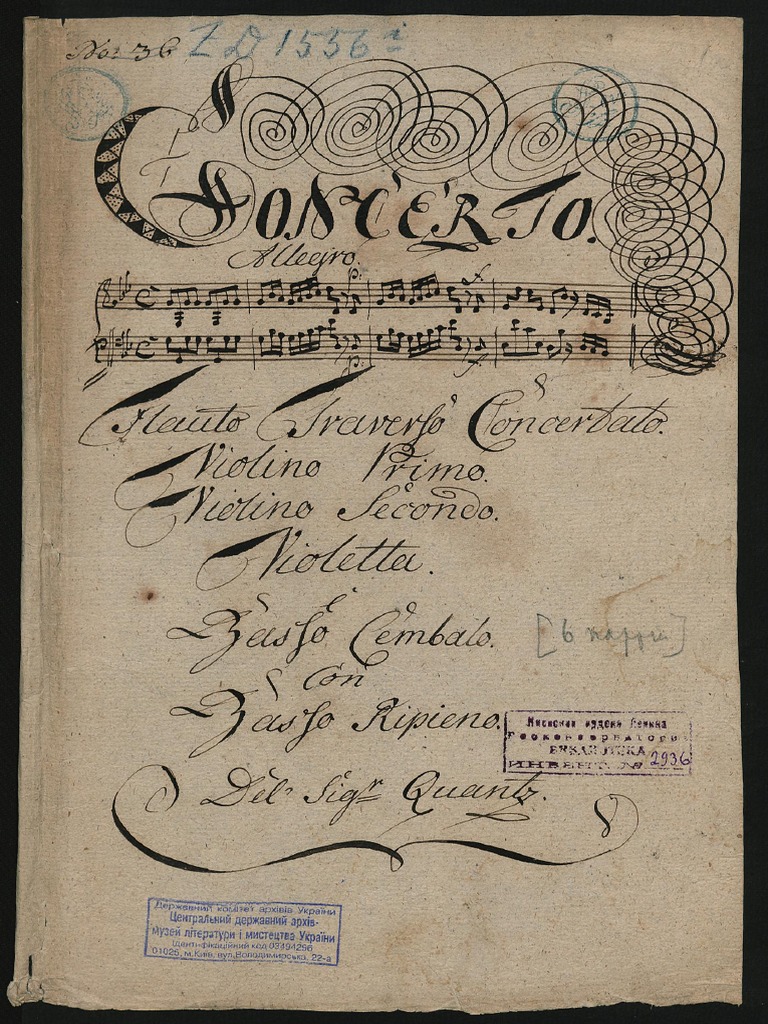 No: 36 ZD 1556 i
CONCERTO.
Allegro.
p: f
p: f
Flauto Traverso Concertato.
Violino Primo.
Violino Secondo.
Violetta.
Basso Cembalo.
[6 партій]
Con
Basso Ripieno.
Киевская ордена Ленина
Госконсерватория
БИБЛИОТЕКА
ИНВЕНТ. № 2936
Del Sigr Quantz.
Державний комітет архівів України
Центральний державний архів-
музей літератури і мистецтва України
Ідентифікаційний код 03494256
01025, м.Київ, вул.Володимирська, 22-а